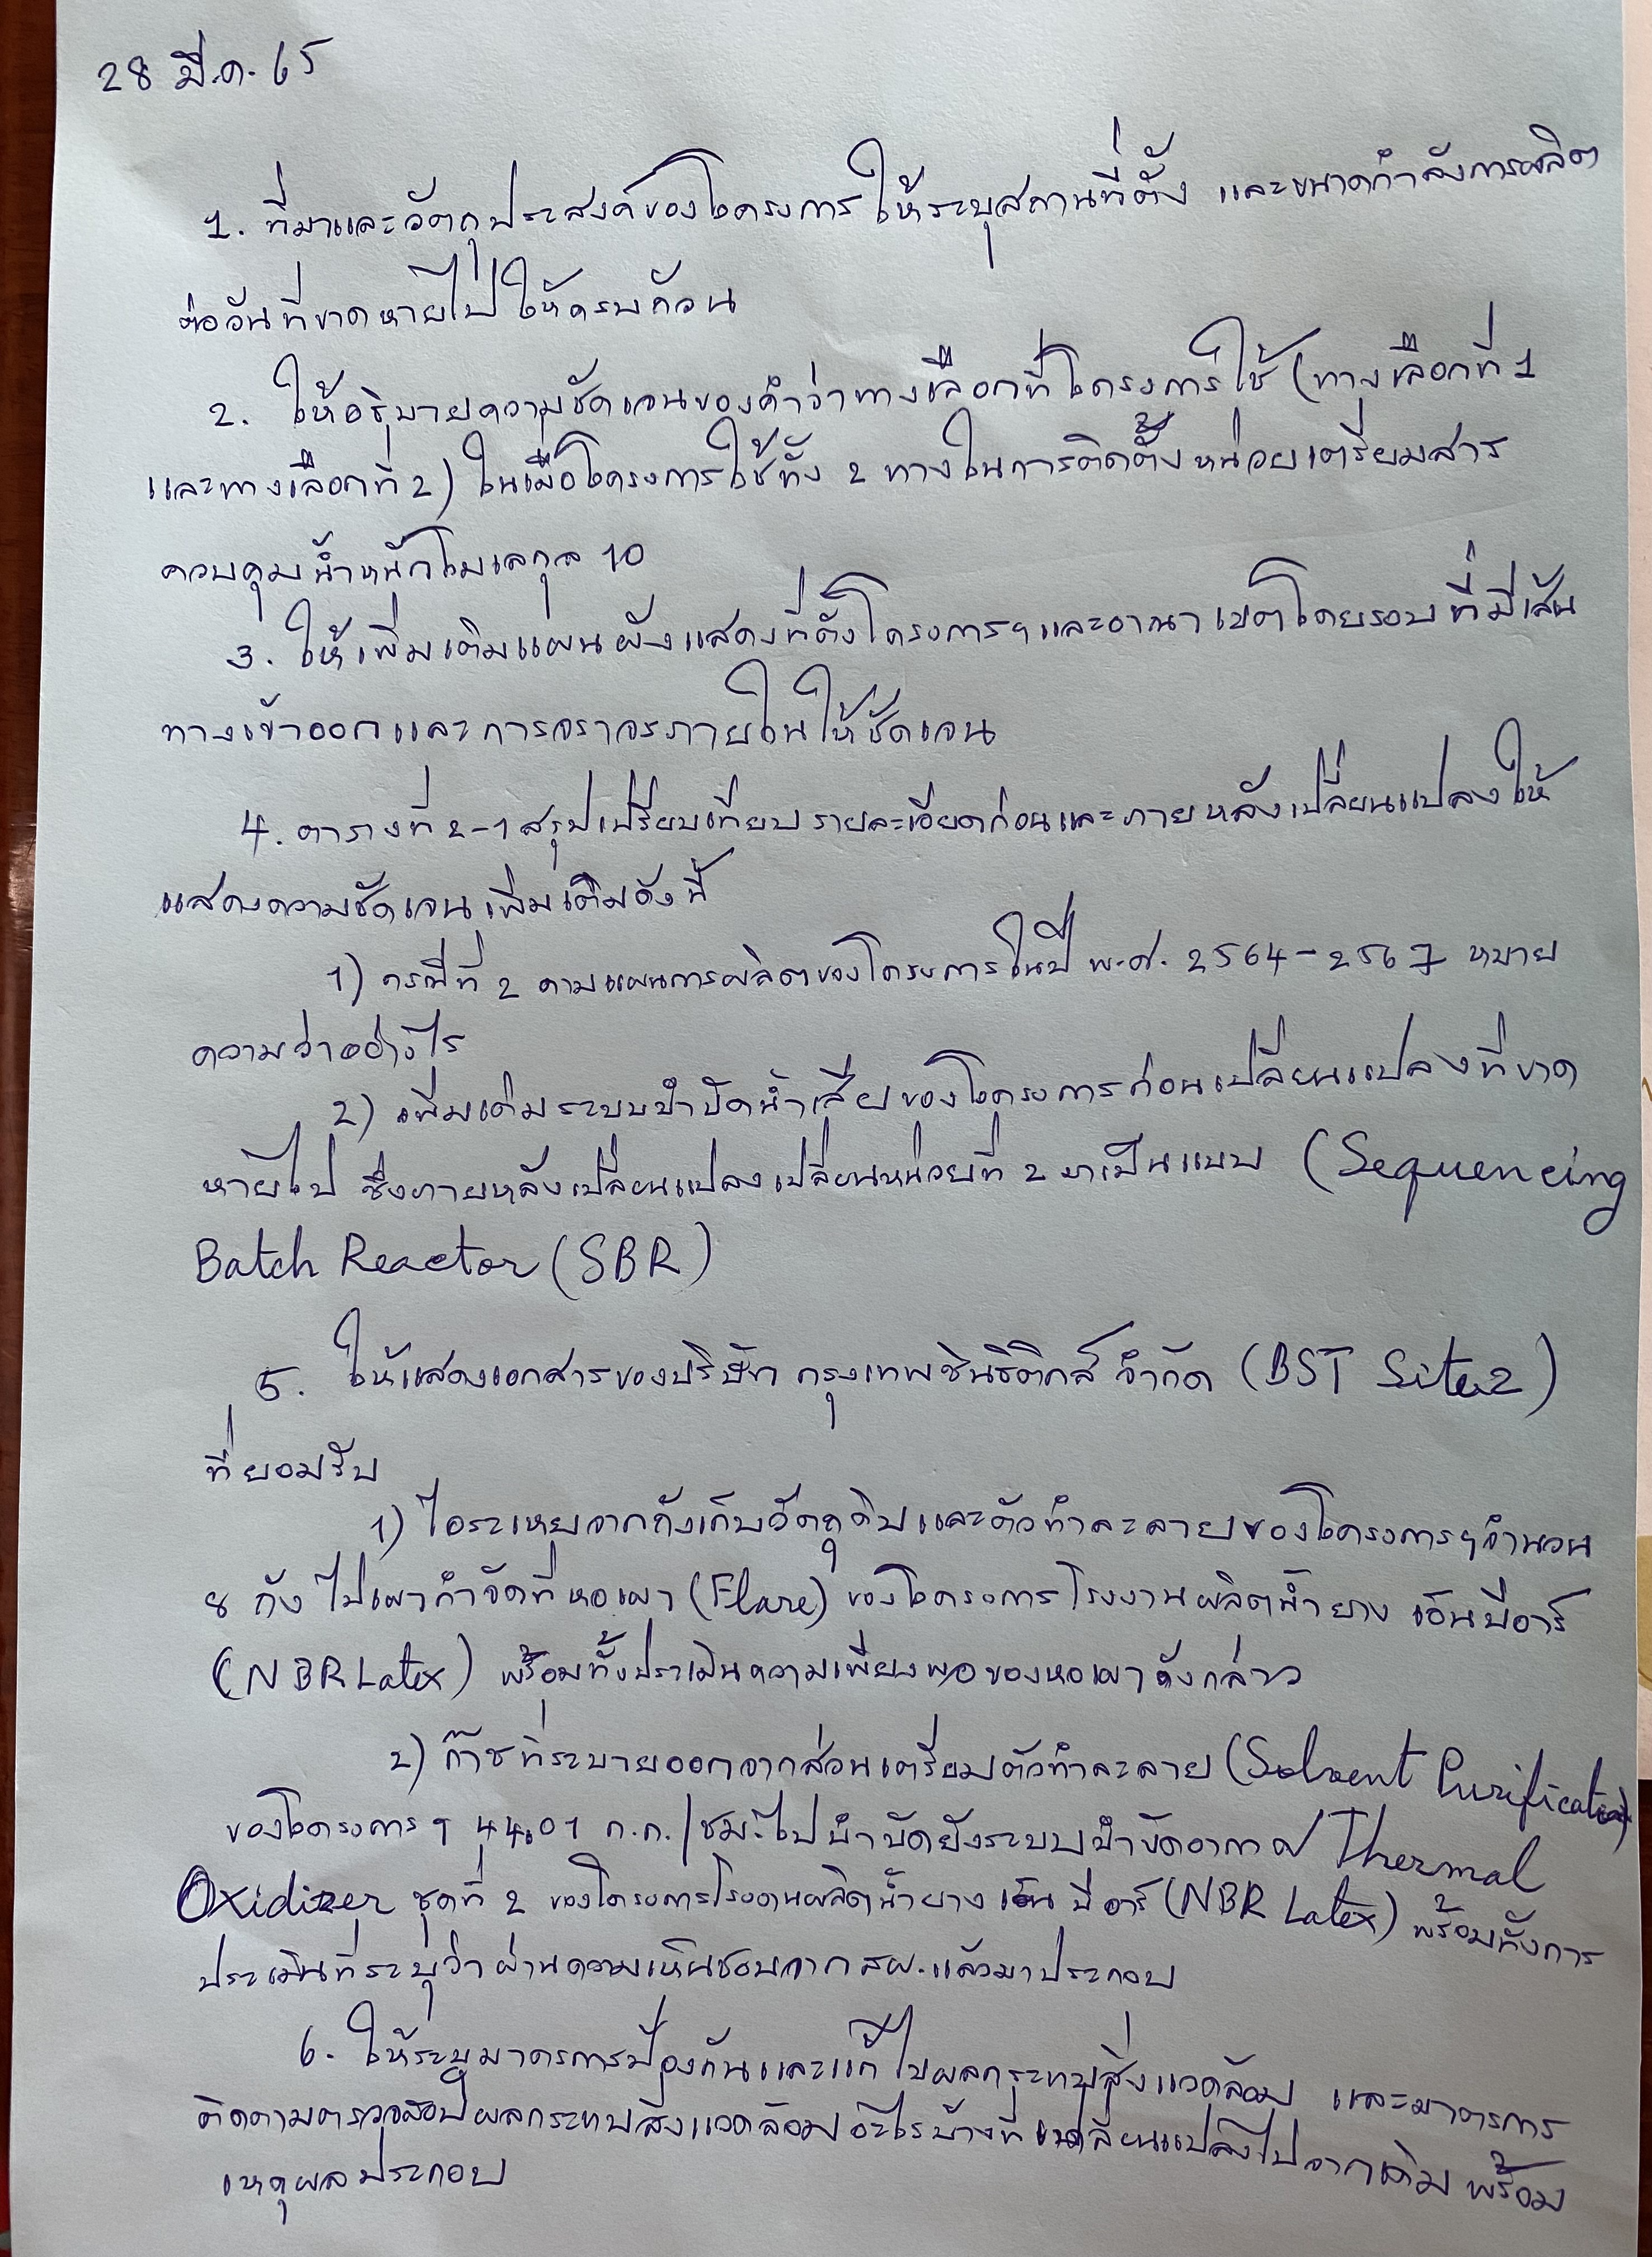 28 มี.ค. 65
1. ที่มาและวัตถุประสงค์ของโครงการ ให้ระบุสถานที่ตั้ง และขนาดกำลังการผลิต
ต่อวันที่ขาดหายไป ให้ครบถ้วน
2. ให้อธิบายความชัดเจนของคำว่าทางเลือกที่โครงการใช้ (ทางเลือกที่ 1
และทางเลือกที่ 2) ในเมื่อโครงการใช้ทั้ง 2 ทางในการติดตั้งหน่วยเตรียมสาร
ควบคุมน้ำหนักโมเลกุล 10
3. ให้เพิ่มเติมแผนผังแสดงที่ตั้งโครงการฯและอาณาเขตโดยรอบ ที่มีเส้น
ทางเข้าออกและการจราจรภายในให้ชัดเจน
4. ตารางที่ 2-1 สรุปเปรียบเทียบรายละเอียดก่อนและภายหลังเปลี่ยนแปลงให้
แสดงความชัดเจนเพิ่มเติมดังนี้
1) กรณีที่ 2 ตามแผนการผลิตของโครงการในปี พ.ศ. 2564-2567 หมาย
ความว่าอย่างไร
2) เพิ่มเติมระบบบำบัดน้ำเสียของโครงการก่อนเปลี่ยนแปลงที่ขาด
หายไป ซึ่งภายหลังเปลี่ยนแปลงเปลี่ยนหน่วยที่ 2 มาเป็นแบบ (Sequencing
Batch Reactor (SBR)
5. ให้แสดงเอกสารของบริษัท กรุงเทพซินธิติกส์ จำกัด (BST Site2)
ที่ยอมรับ
1) ไอระเหยจากถังเก็บวัตถุดิบและตัวทำละลายของโครงการฯจำนวน
8 ถัง ไปเผากำจัดที่หอเผา (Flare) ของโครงการโรงงานผลิตน้ำยาง เอ็นบีอาร์
(NBR Latex) พร้อมทั้งประเมินความเพียงพอของหอเผาดังกล่าว
2) ก๊าซที่ระบายออกจากส่วนเตรียมตัวทำละลาย (Solvent Purification)
ของโครงการฯ 44.01 ก.ก./ชม. ไปบำบัดยังระบบบำบัดอากาศ Thermal
Oxidizer ชุดที่ 2 ของโครงการโรงงานผลิตน้ำยาง เอ็น บีอาร์ (NBR Latex) พร้อมทั้งการ
ประเมินที่ระบุว่าผ่านความเห็นชอบจาก สผ. แล้วมาประกอบ
6. ให้ระบุมาตรการป้องกันและแก้ไขผลกระทบสิ่งแวดล้อม และมาตรการ
ติดตามตรวจสอบผลกระทบสิ่งแวดล้อมอะไรบ้างที่เปลี่ยนแปลงไปจากเดิม พร้อม
เหตุผลประกอบ